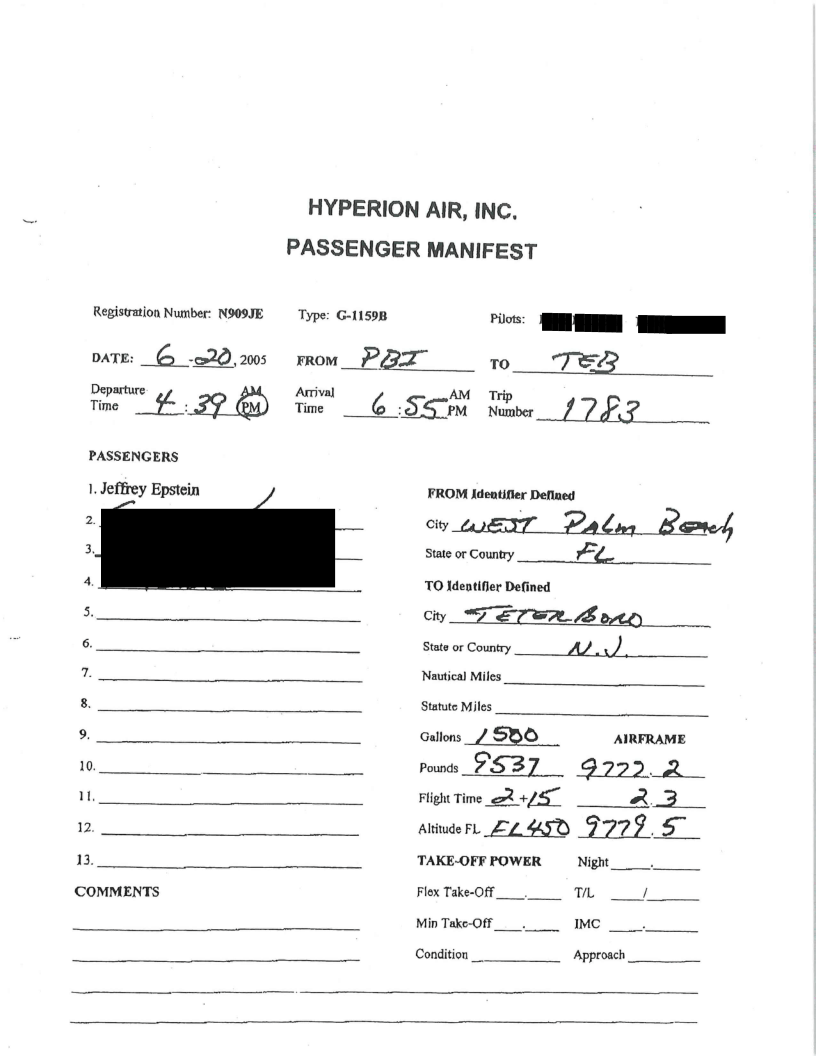 HYPERION AIR, INC.
PASSENGER MANIFEST
Registration Number: N909JE Type: G-1159B Pilots:
DATE: 6-20, 2005 FROM PBI TO TEB
Departure Time 4:39 AM PM Arrival Time 6:55 AM PM Trip Number 1783
PASSENGERS
1. Jeffrey Epstein
FROM Identifier Defined
2.
City WEST PALM BEACH
3.
State or Country FL
4.
TO Identifier Defined
5.
City TETERBORO
6.
State or Country N.J.
7.
Nautical Miles
8.
Statute Miles
9.
Gallons 1500 AIRFRAME
10.
Pounds 9537 9777.2
11.
Flight Time 2+15 2.3
12.
Altitude FL FL450 9779.5
13.
TAKE-OFF POWER Night .
COMMENTS
Flex Take-Off . T/L /
Min Take-Off . IMC .
Condition Approach